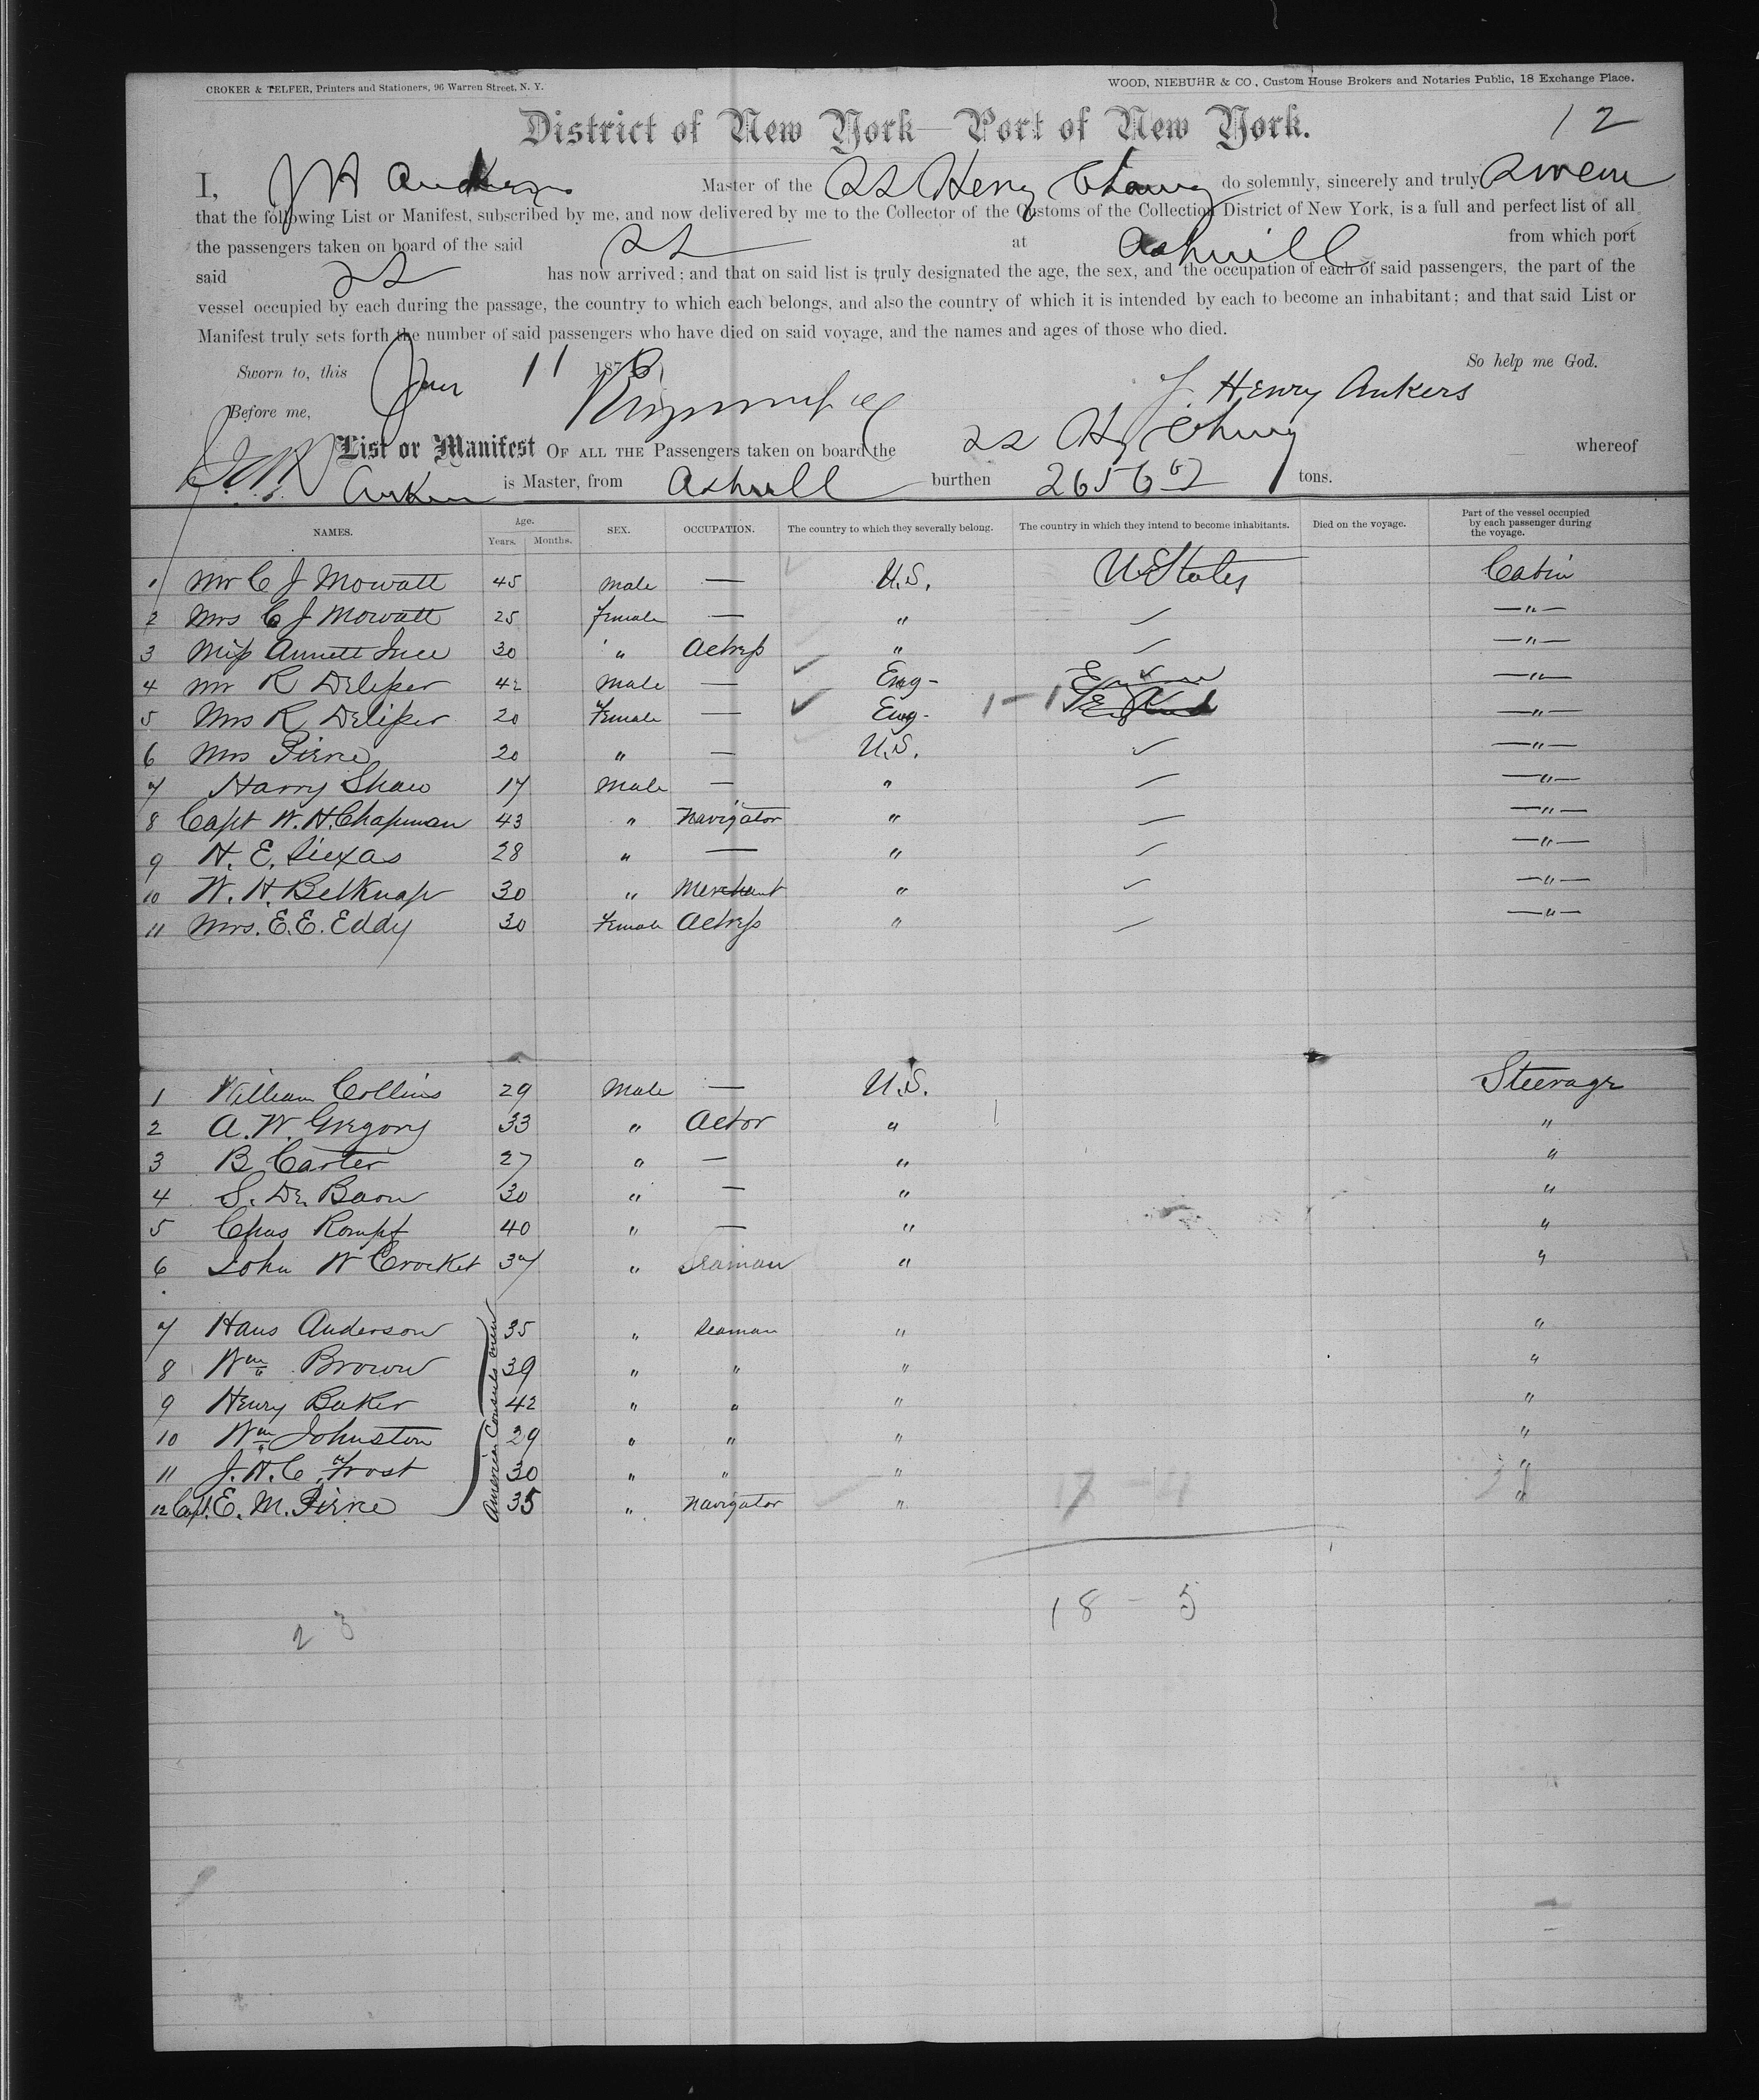 CROKER & TELFER, Printers and Stationers, 96 Warren Street, N. Y.
WOOD, NIEBUHR & CO., Custom House Brokers and Notaries Public, 18 Exchange Place.
12
District of New York—Port of New York.
I, J H Ankers Master of the SS Henry Chauncey do solemnly, sincerely and truly swear
that the following List or Manifest, subscribed by me, and now delivered by me to the Collector of the Customs of the Collection District of New York, is a full and perfect list of all
the passengers taken on board of the said SS at Aspinwall from which port
said SS has now arrived; and that on said list is truly designated the age, the sex, and the occupation of each of said passengers, the part of the
vessel occupied by each during the passage, the country to which each belongs, and also the country of which it is intended by each to become an inhabitant; and that said List or
Manifest truly sets forth the number of said passengers who have died on said voyage, and the names and ages of those who died.
Sworn to, this Jan 11 1876 So help me God.
Before me, J. Henry Ankers
List or Manifest OF ALL THE Passengers taken on board the SS Hy Chaucy whereof
Ankers is Master, from Aspinwall burthen 2656 tons.
NAMES. Age. Years. Months. SEX. OCCUPATION. The country to which they severally belong. The country in which they intend to become inhabitants. Died on the voyage. Part of the vessel occupied by each passenger during the voyage.
1 Mr C J Mowatt 45 Male — U.S. U States Cabin
2 Mrs C J Mowatt 25 Female — " —"—
3 Miss Annett Ince 30 " Actress " —"—
4 Mr R Delisser 42 Male — Eng- —"—
5 Mrs R Delisser 20 Female — Eng- 1-1 England —"—
6 Mrs Pirne 20 " — U.S. —"—
7 Harry Shaw 17 Male — " —"—
8 Capt W. H. Chapman 43 " Navigator " —"—
9 H. E. Siexas 28 " — " —"—
10 W. H. Belknap 30 " Merchant " —"—
11 Mrs. E. E. Eddy 30 Female Actress " —"—
1 William Collins 29 Male — U.S. Steerage
2 A. W. Gregory 33 " Actor " "
3 B Carter 27 " — " "
4 S. De Baon 30 " — " "
5 Chas Rompf 40 " — " "
6 John W Crocket 37 " Seaman " "
American Consuls men
7 Hans Anderson 35 " Seaman " "
8 Wm Brown 39 " " " "
9 Henry Baker 42 " " " "
10 Wm Johnston 29 " " " "
11 J. H. C. Frost 30 " " " "
12 Capt. E. M. Pirne 35 " Navigator " "
18 - 5
23